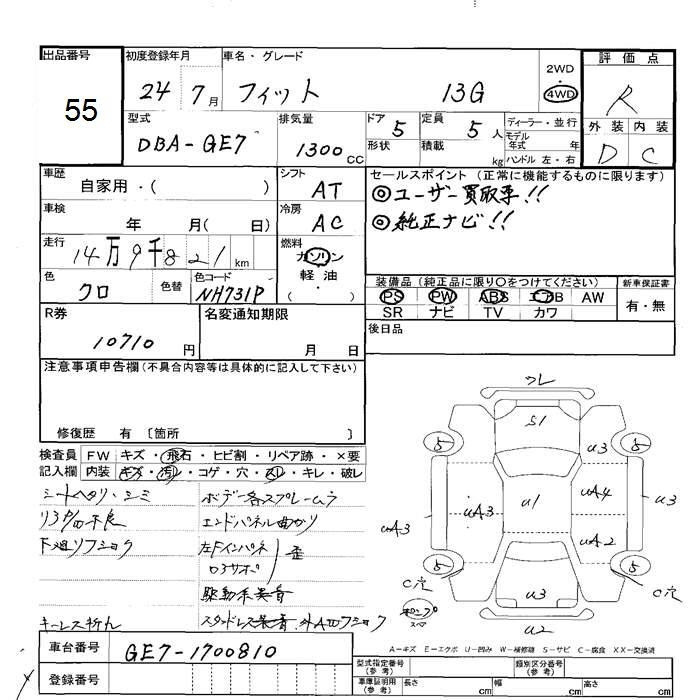 出品番号
55
初度登録年月
24 7月
車名・グレード
フィット 13G
2WD
・
4WD
評価点
R
外装 内装
D C
型式
DBA-GE7
排気量
1300cc
ドア 5
形状
定員 5人
積載 kg
ディーラー・並行
モデル年式 年
ハンドル 左・右
車歴
自家用・( )
シフト
AT
セールスポイント (正常に機能するものに限ります)
◎ユーザー買取車!!
◎純正ナビ!!
車検
年 月( 日)
冷房
AC
走行
14万9千821km
燃料
ガソリン
軽油
( )
色
クロ
色替
色コード
NH731P
装備品(純正品に限り○をつけてください)
PS PW ABS エアB AW
SR ナビ TV カワ
新車保証書
有・無
R券
10710円
名変通知期限
月 日
後日品
注意事項申告欄(不具合内容等は具体的に記入して下さい)
修復歴 有 〔箇所 〕
検査員記入欄
FW キズ・飛石・ヒビ割・リペア跡・×要
内装 キズ・汚れ・コゲ・穴・スレ・キレ・破レ
シートヘタリ・シミ
下廻リフショク
キーレス折れ
ボデー各スプレームラ
エンドパネル曲がり
左Fインパネ
歪
駆動系異音
ワレ
S1
5
5
u3
uA3
uA3
u1
uA4
u3
uA2
5
5
C穴
C穴
u3
u2
A-キズ E-エクボ U-凹み W-補修跡 S-サビ C-腐食 XX-交換済
車台番号
GE7-1700810
登録番号
型式指定番号(参考)
類別区分番号(参考)
車庫証明用(参考)
長さ cm
幅 cm
高さ cm